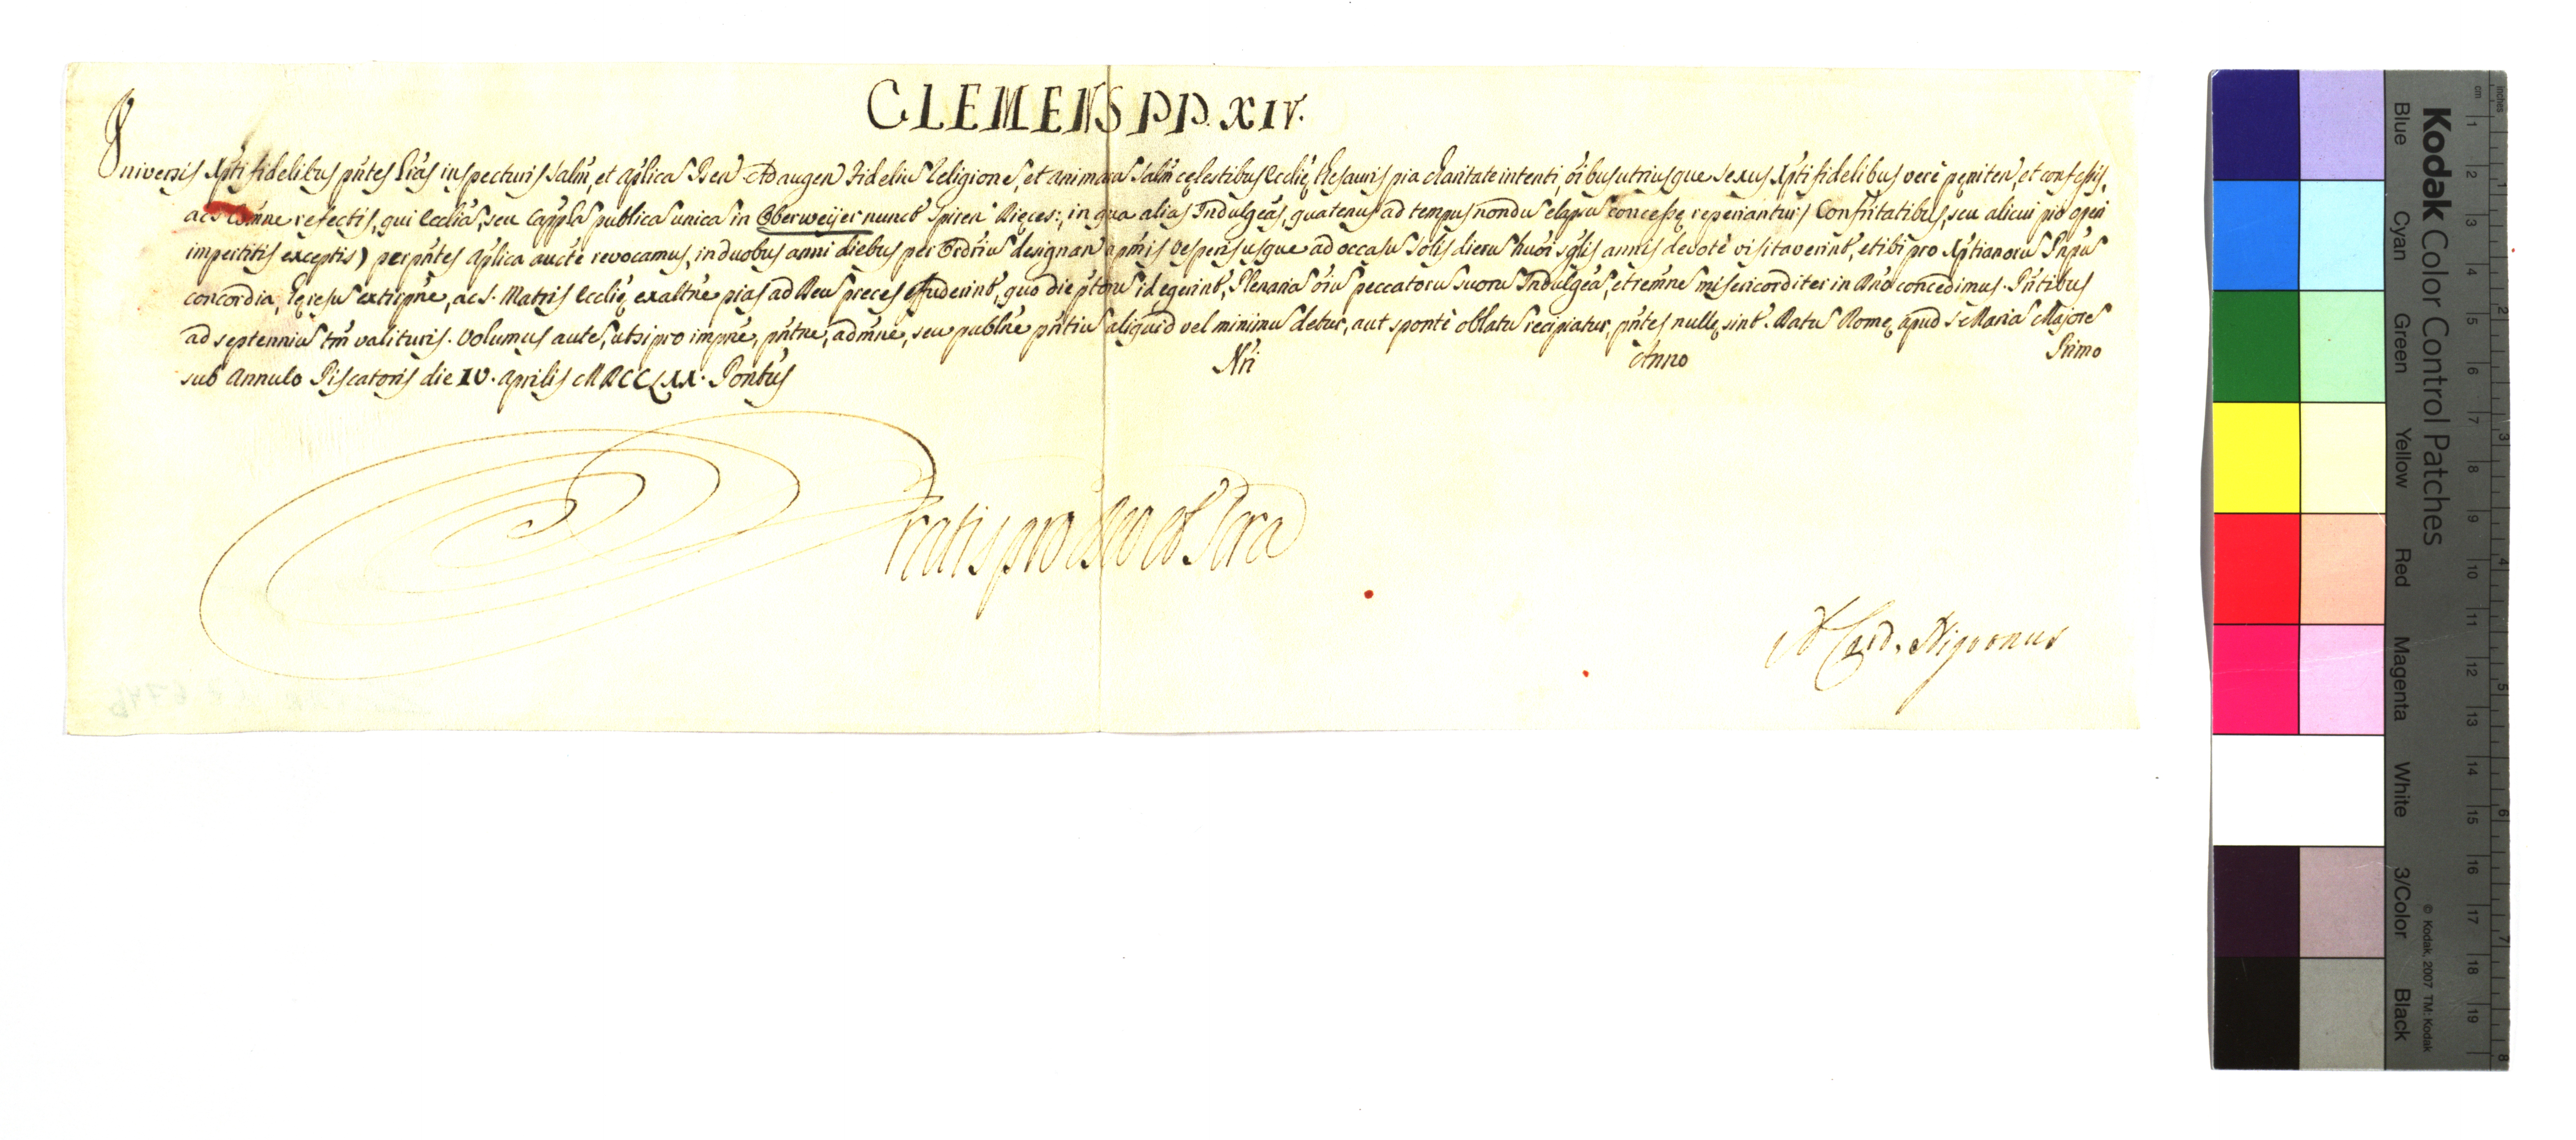 CLEMENS PP. XIV.
Universis Xpti fidelibus pntes Lras inspecturis Salm, et Aplica Ben Ad augen Fideliu Religione, et animaru Salm celestibus Ecclie thesauris pia charitate intenti, oibus utriusque sexus Xpti fidelibus vere peniten, et confessis,
ac S Comne refectis, qui Ecclia, seu Cappla publica unica in Oberweijer nunct Spiren Dieces:, in qua alias Indulgeas, quatenus ad tempus nondu elapsu concesse reperiantur, Confritatibus, seu alicui pio operi
impertitis exceptis) per pntes Aplica aucte revocamus, in duobus anni diebus per Ordriu designan a pmis vesperis usque ad occasu Solis dieru huoi sglis annis devote visitaverint, et ibi pro Xptianoru Pnpu
concordia, heresu extirpne, ac S. Matris Ecclie exaltne pias ad Deu preces effuderint, quo die ptoru id egerint, Plenaria oiu peccatoru suoru Indulgea, et remne misericorditer in Dno concedimus. Pntibus
ad septenniu tm valituris. Volumus aute, ut si pro impne, pntne, admne, seu publne pntiu aliquid vel minimu detur, aut sponte oblatu recipiatur, pntes nulle sint. Datu Rome, apud S. Maria Majore
sub Annulo Piscatoris die IV. Aprilis MDCCLXX. Pontus Nri Anno Primo
Gratis pro Deo et Scra
A Card. Nigronus
Kodak Color Control Patches
Blue Cyan Green Yellow Red Magenta White 3/Color Black
© Kodak, 2007 TM: Kodak
cm 1 2 3 4 5 6 7 8 9 10 11 12 13 14 15 16 17 18 19
inches 1 2 3 4 5 6 7 8